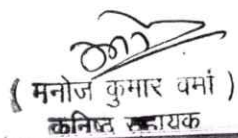 ( मनोज कुमार वर्मा )
कनिष्ठ सहायक